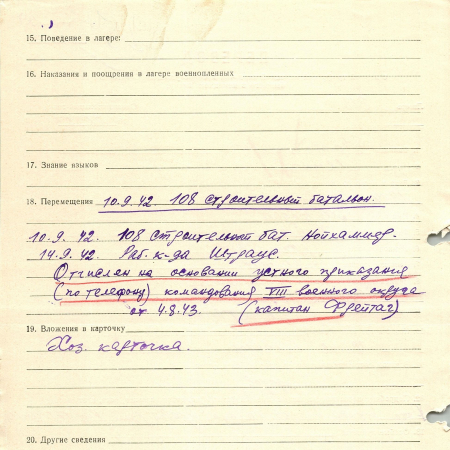 15. Поведение в лагере:
16. Наказания и поощрения в лагере военнопленных
17. Знание языков
18. Перемещения 10.9.42 108 строительный батальон.
10.9.42. 108 строительный бат. Нойхаммер.
14.9.42. Раб. к-да Штраус.
Отчислен на основании устного приказания
(по телефону) командования VIII военного округа
от 4.8.43. (капитан Фрейтаг)
19. Вложения в карточку
Хоз. карточка.
20. Другие сведения